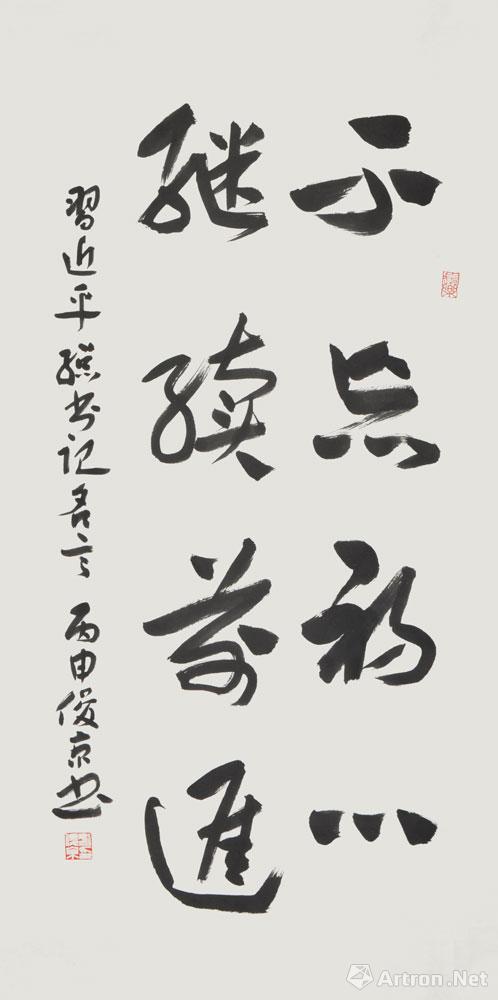 不忘初心
继续前進
習近平總书记名言 丙申俊京书
Artron.Net